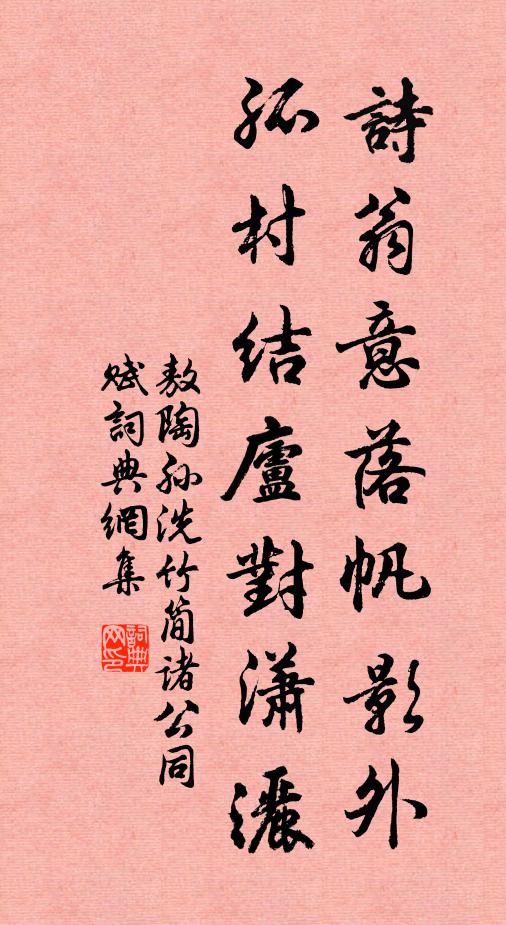 詩翁意落帆影外
孤村結廬對瀟灑
敖陶孙洗竹简诸公同
赋詞典網集
詞典网印